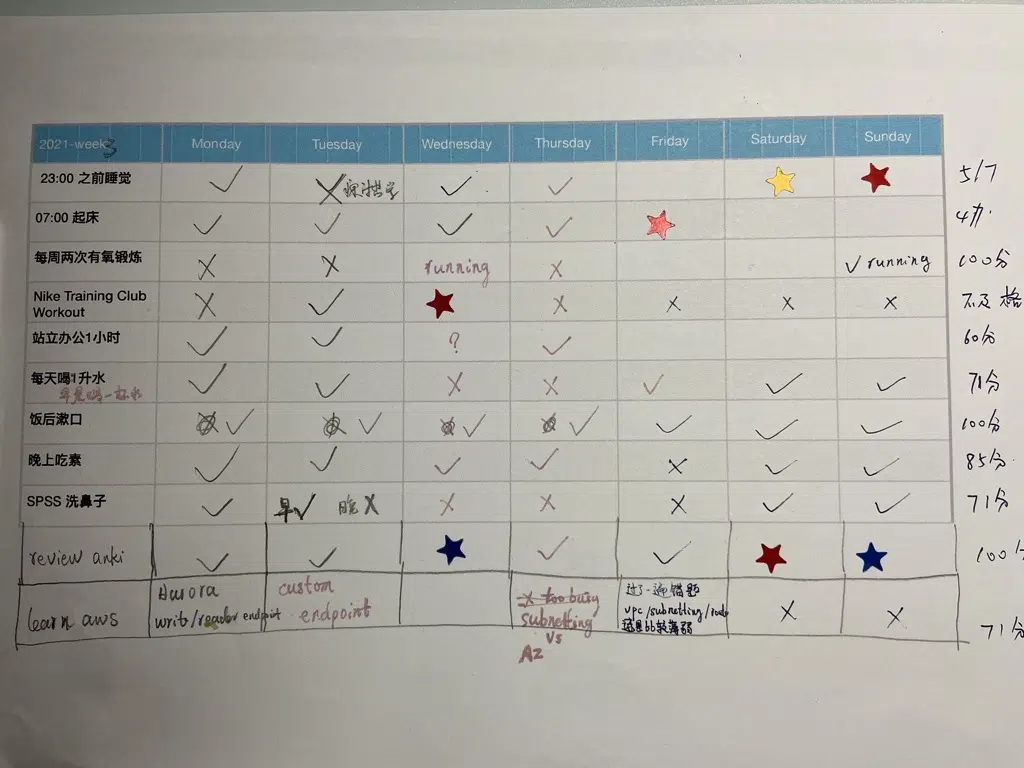 2021-week3 Monday Tuesday Wednesday Thursday Friday Saturday Sunday
23:00 之前睡觉 5/7
07:00 起床
每周两次有氧锻炼 running running 100分
Nike Training Club
Workout 不及格
站立办公1小时 ? 60分
每天喝1升水 71分
早晨喝一杯水
饭后漱口 100分
晚上吃素 85分
SPSS 洗鼻子 早 晚 71分
review anki 100分
learn aws 71分
Aurora
write/reader endpoint
custom
endpoint
too busy
subnetting
vs
AZ
过了一遍错题
vpc/subnetting/route